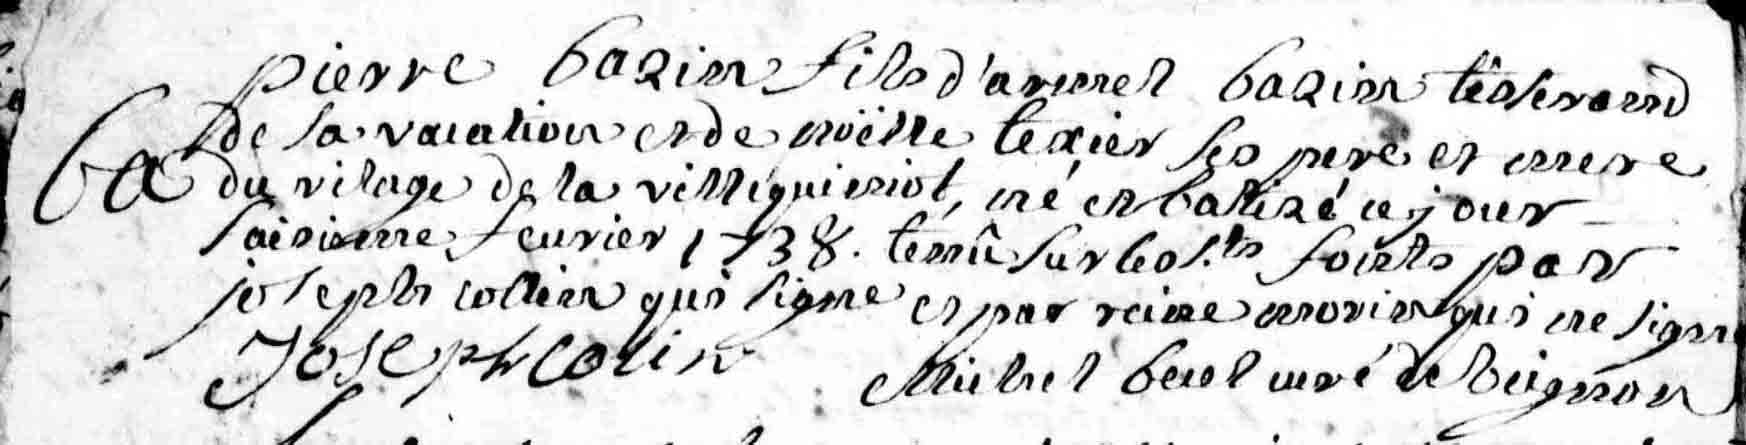 pierre bazin fils d'armel bazin tesserand
de sa vacation et de noëlle texier ses pere et mere
ba du vilage de la villeguiniot, né et batizé ce jour
saizieme feurier 1738. tenû sur les sts fonts par
joseph collin qui signe et par reine morin qui ne signe
Joseph colin Michel beul curé de beignon